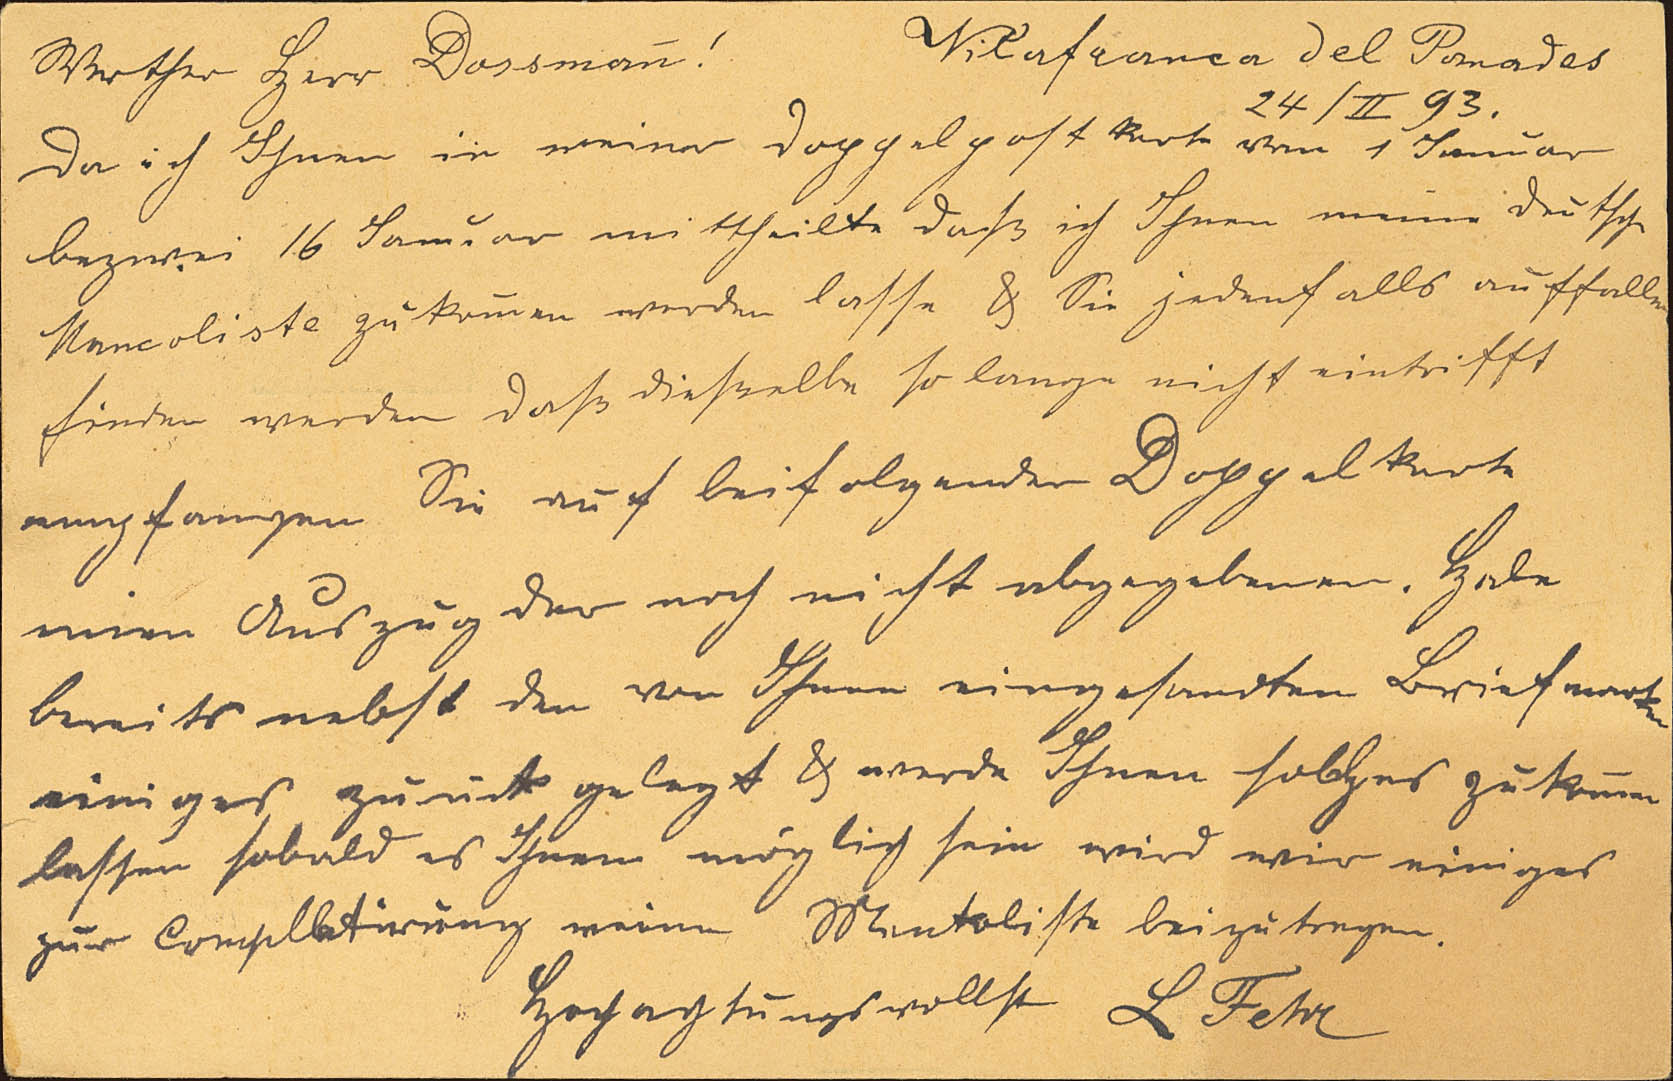 Werther Herr Dossmann!
Vilafranca del Panades
24/II 93.
Da ich Ihnen in meiner Doppelpostkarte vom 1 Januar
bezwei 16 Januar mittheilte daß ich Ihnen meine deutsche
Mancoliste zukommen werden lasse & Sie jedenfalls auffallen
finden werden daß dieselbe so lange nicht eintrifft
empfangen Sie auf beifolgender Doppelkarte
einen Auszug der noch nicht abgegebenen. Habe
bereits nebst den von Ihnen eingesandten Briefmarken
einiges zurück gelegt & werde Ihnen solches zukommen
lassen sobald es Ihnen möglich sein wird mir einiges
zur Complettirung meiner beizutragen.
Hochachtungsvollst L Fehr